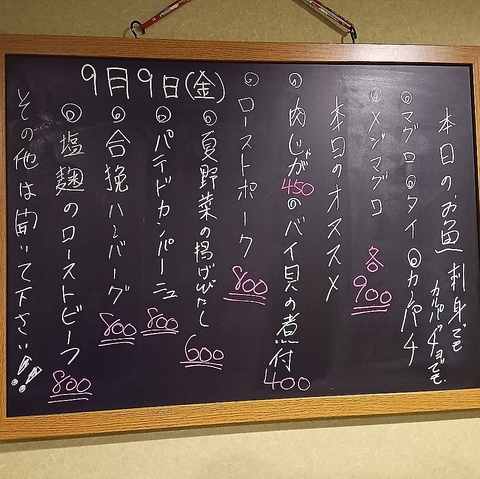 9月9日(金)
本日のお魚 刺身でも
カルパッチョでも
◎マグロ◎タイ◎カンパチ
◎メジマグロ 各900
本日のオススメ
◎肉じゃが450◎バイ貝の煮付400
◎ローストポーク 800
◎夏野菜の揚げびたし 600
◎パテドカンパーニュ 800
◎合挽ハンバーグ 800
◎塩麹のローストビーフ 800
その他は聞いて下さい!!